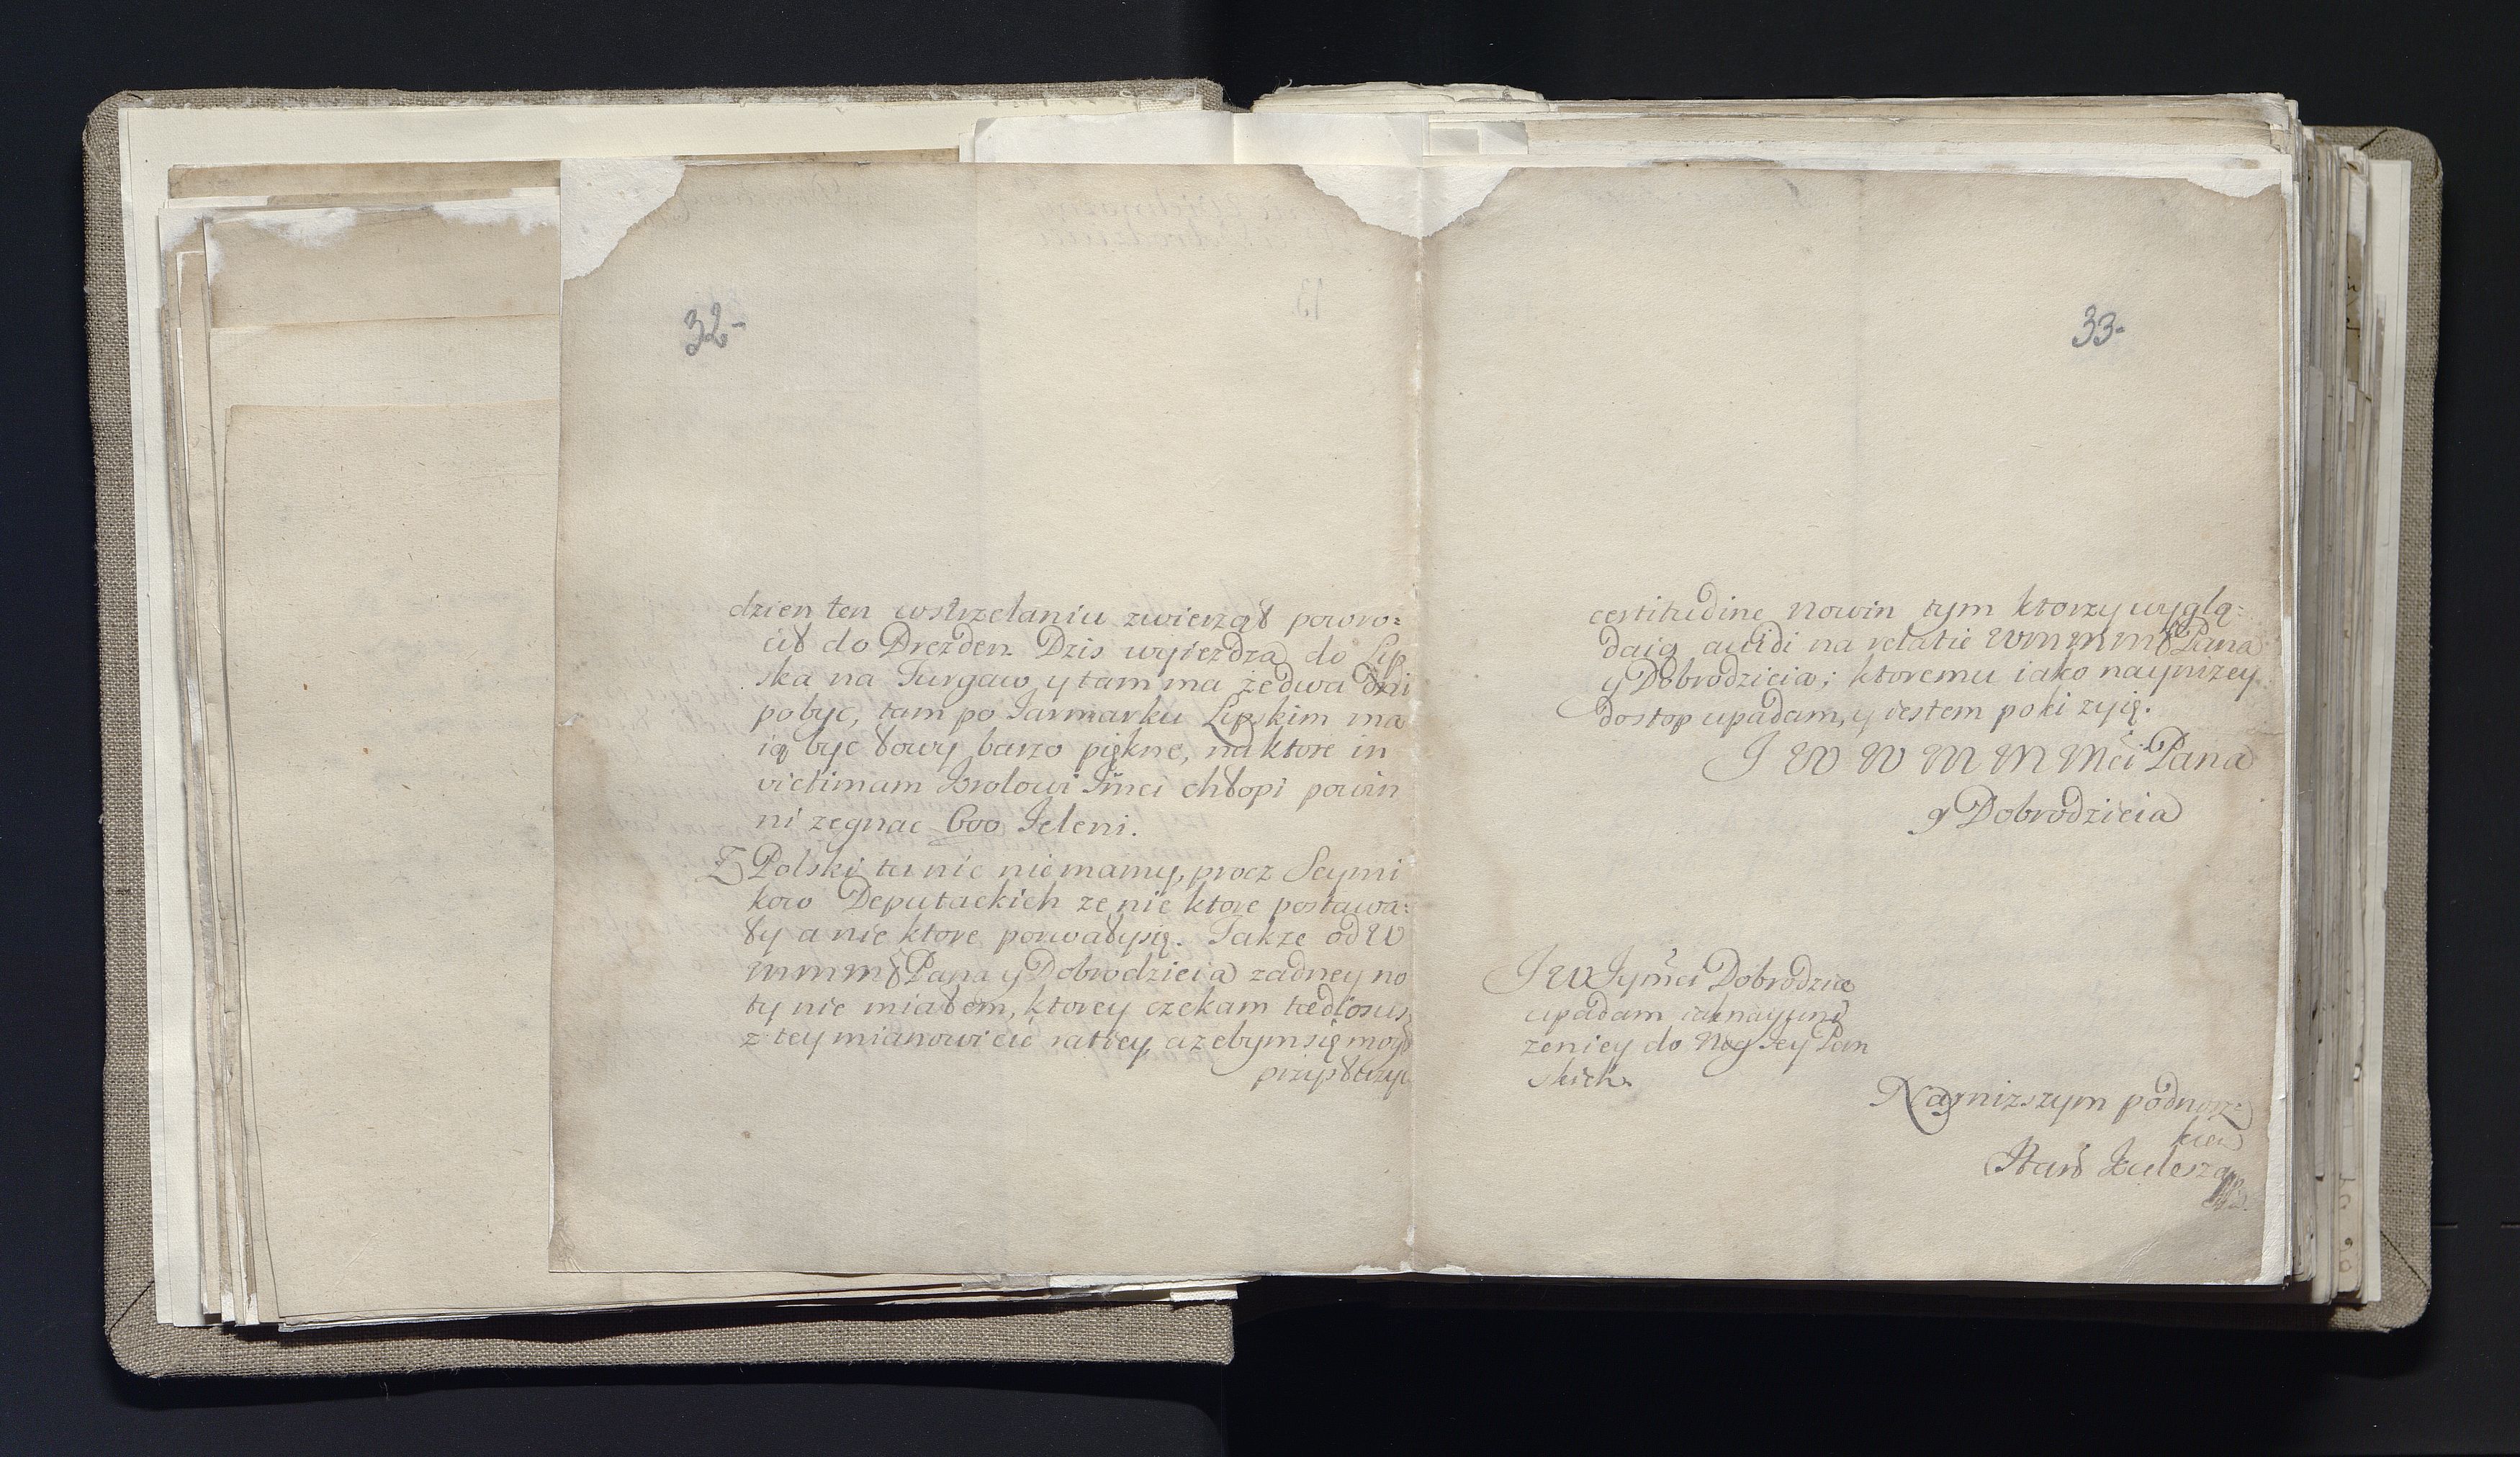 32-
dzien ten wstrzelaniu zwierząt powro=
cił do Drezden. Dzis wyiezdza do Lip
ska na Turgaw y tam ma ze dwa dni
pobyc, tam po Jarmarku Lipskim ma
ią byc łowy barzo piękne, na ktore in
victimam Krolowi Jmci chłopi powin
ni zegnac 600 Jeleni.
Z Polski tu nic niemamy, procz Seymi
kow Deputackich ze nie ktore postawa=
ły a nie ktore porwałysię. Takze od W
mmmł Pana y Dobrodzieia zadney no
ty nie miałem, ktorey czekam tædiosus
z tey mianowicie ratiey, azebym się mogł
33-
certitudine nowin tym ktorzy wyglą=
daią avidi na relatie Wmmmł Pana
y Dobrodzieia; ktoremu iako naynizey
dostop upadam, y iestem poki zyię.
J W W M M Mci Pana
y Dobrodzieia
J W Jymci Dobrodzice
upadam iaknayuni
zeniey do Nog Jey Pan
skich.
Naynizszym podnoz=
kiem
Stanł Kulesza